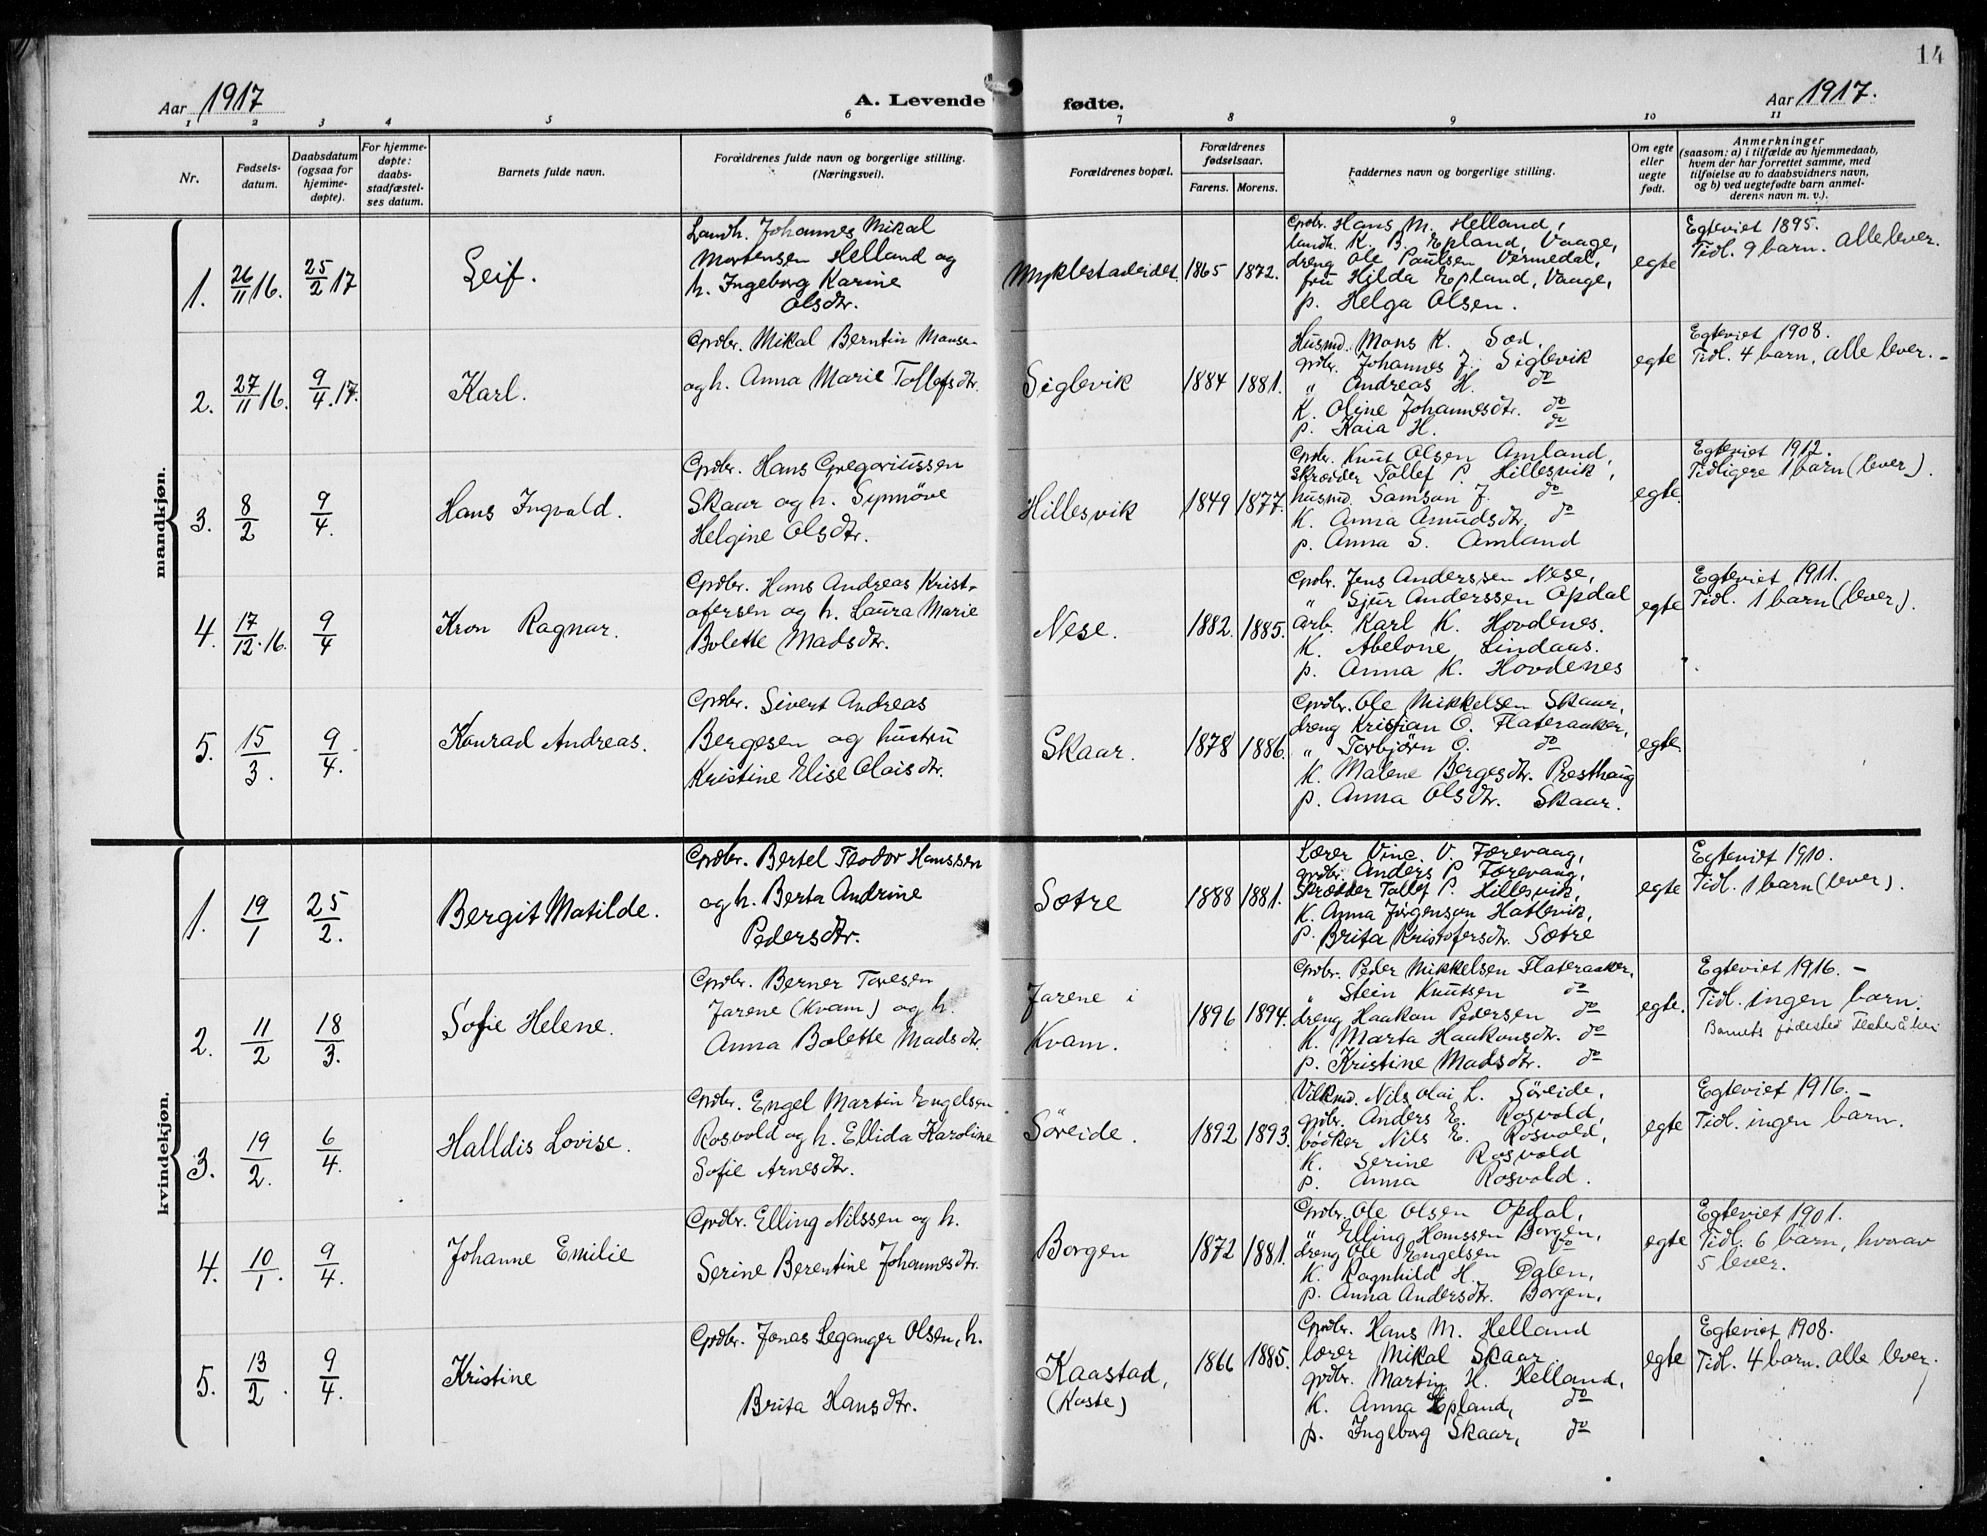 14
Aar 1917
A. Levende fødte.
Aar 1917.
1 2 3 4 5 6 7 8 9 10 11
Nr.
Fødsels-
datum.
Daabsdatum
(ogsaa for
hjemme-
døpte).
For hjemme-
døpte:
daabs-
stadfæstel-
ses datum.
Barnets fulde navn.
Forældrenes fulde navn og borgerlige stilling.
(Næringsvei).
Forældrenes bopæl.
Forældrenes
fødselsaar.
Farens. Morens.
Faddernes navn og borgerlige stilling.
Om egte
eller
uegte
født.
Anmerkninger
(saasom: a) i tilfælde av hjemmedaab,
hvem der har forrettet samme, med
tilføielse av to daabsvidners navn,
og b) ved uegtefødte barn anmel-
derens navn m. v.).
mandkjøn.
1. 26/11 16. 25/2 17 Leif.
Landh. Johannes Mikal
Mortensen Helland og
h. Ingeborg Karine
Olsdtr.
Myklestadeidet 1865 1872.
Grdbr. Hans M. Helland,
landh. K. B. Epland, Vaage,
dreng Ole Paulsen Vermedal,
fru Hilda Epland, Vaage,
p. Helga Olsen.
egte
Egteviet 1895.
Tidl. 9 barn. Alle lever.
2. 27/11 16. 9/4.17. Karl.
Grdbr. Mikal Berntin Monse-
og h. Anna Marie Tollefsdtr.
Siglevik 1884 1881.
Husmd. Mons K. Sæd,
grdbr. Johannes J. Siglevik
" Andreas H. do
K. Oline Johannesdtr. do
p. Kaia H. do
egte
Egteviet 1908.
Tidl. 4 barn, alle lever. -
3. 8/2 9/4. Hans Ingvald.
Grdbr. Hans Gregoriussen
Skaar og h. Synnöve
Helgine Olsdtr.
Hillesvik 1849 1877.
Grdbr. Knut Olsen Amland,
Skrædder Tollef P. Hillesvik,
husmd. Samson J. do
K. Anna Amundsdtr. do
p. Anna S. Amland
egte.
Egteviet 1912.
Tidligere 1 barn (lever).
4. 17/12.16. 9/4 Kron Ragnar.
Grdbr. Hans Andreas Krist-
ofersen og h. Laura Marie
Bolette Madsdtr.
Nese. 1882. 1885.
Grdbr. Jens Anderssen Nese,
" Sjur Anderssen Opdal
arb. Karl K. Hovdenes.
K. Abelone Lindaas.
p. Anna K. Hovdenes
egte
Egteviet 1911.
Tidl. 1 barn (lever).
5. 15/3. 9/4. Konrad Andreas.
Grdbr. Sivert Andreas
Bergesen og hustru
Kristine Elise Olaisdtr.
Skaar. 1878 1886.
Grdbr. Ole Mikkelsen Skaar,
dreng Kristian O. Flateraaker,
" Torbjørn O. do
K. Malene Bergesdtr. Presthaug
p. Anna Olsdtr. Skaar.
egte.
kvindekjøn.
1. 19/1 25/2. Bergit Matilde.
Grdbr. Bertel Teodor Hanssen
og h. Berta Andrine
Pedersdtr.
Sætre 1888 1881.
Lærer Vinc. V. Færevaag,
grdbr. Anders P. Færevaag,
Skrædder Tollef P. Hillesvik,
K. Anna Jørgenson Hatlevik,
p. Brita Kristofersdtr. Sætre
egte
Egteviet 1910.
Tidl. 1 barn (lever).
2. 11/2 18/3. Sofie Helene.
Grdbr. Berner Toresen
Jarene (Kvam) og h.
Anna Bolette Madsdtr.
Jarene i
Kvam. 1896 1894.
Grdbr. Peder Mikkelsen Flateraaker,
" Stein Knutsen do
dreng Haakon Pedersen do
K. Marta Haakonsdtr. do
p. Kristine Madsdtr. do
egte.
Egteviet 1916. -
Tidl. ingen barn.
Barnets fødested Flateråker
3. 19/2. 6/4. Halldis Lovise.
Grdbr. Engel Martin Engelsen
Rosvold og h. Ellida Karoline
Sofie Arnesdtr.
Søreide. 1892 1893.
Vilkmd. Nils Olai L. Søreide,
grdbr. Anders E. Rosvold,
bødker Nils E. Rosvold,
K. Serine Rosvold
p. Anna Rosvold.
egte
Egteviet 1916. -
Tidl. ingen barn.
4. 10/1. 9/4. Johanne Emilie
Grdbr. Elling Nilssen og h.
Serine Berentine Johannesdtr.
Borgen 1872 1881.
Grdbr. Ole Olsen Opdal,
" Elling Hanssen Borgen,
dreng Ole Engelsen do
K. Ragnhild H. Dalen,
p. Anna Andersdtr. Borgen,
egte
Egteviet 1901.
Tidl. 6 barn, hvorav
5 lever.
5. 13/2. 9/4. Kristine
Grdbr. Jonas Leganger Olsen, h.
Brita Hansdtr.
Kaastad,
(Koste) 1866 1885.
Grdbr. Hans M. Helland
lærer Mikal Skaar
grdbr. Martin H. Helland,
K. Anna Epland, do
p. Ingeborg Skaar, do
egte
Egteviet 1908.
Tidl. 4 barn. Alle lever.